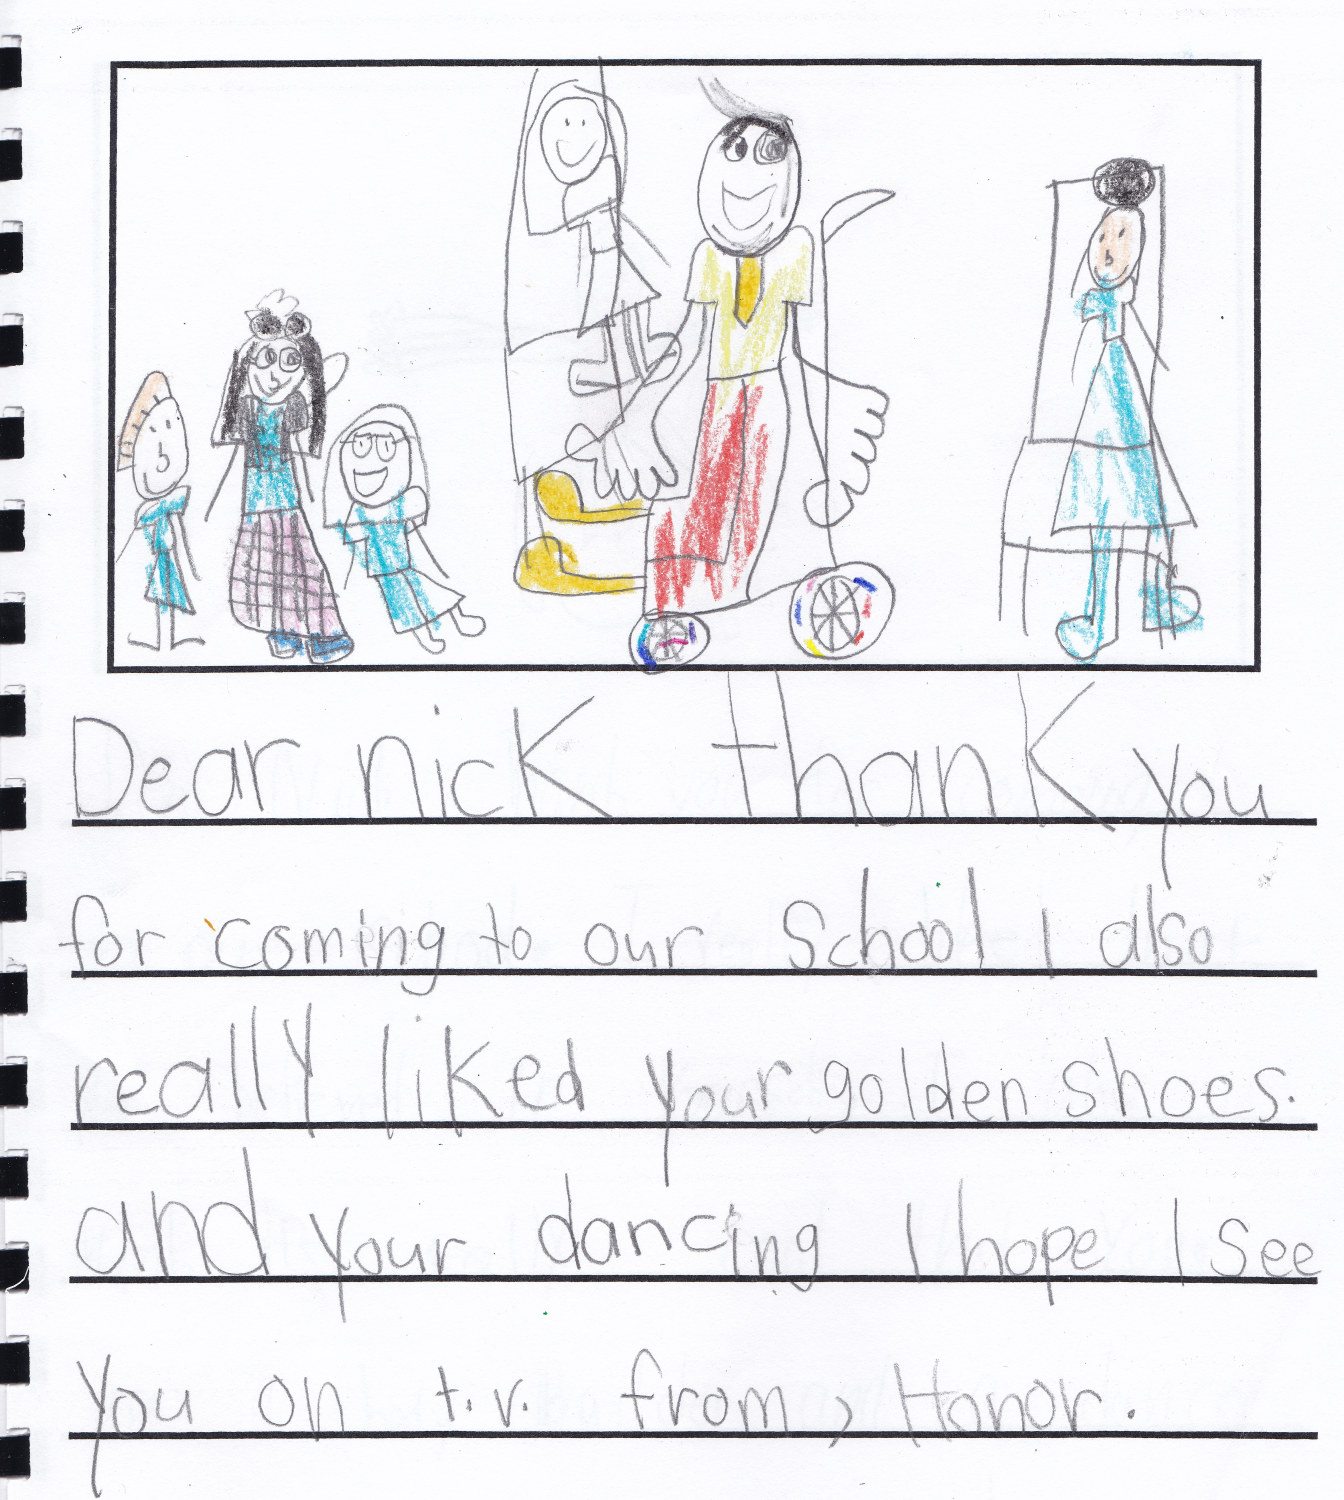 Dear nick thank you
for coming to our School I also
really liked your golden shoes.
and your dancing I hope I see
you on t.v. from, Honor.